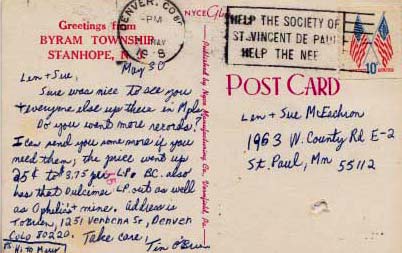 Greetings from
BYRAM TOWNSHIP
STANHOPE, N.
DENVER, CO
PM
MAY
HELP THE SOCIETY OF
ST. VINCENT DE PAUL
HELP THE NEE
10¢
May 30
Len + Sue,
Sure was nice to see you
+ everyone else up there in Mpls.
Do you want more records?
I can send you some more if you
need them; the price went up
25¢ to $3.75 per LP. BC. also
has that Dulcimer LP. out as well
as Ophelia's + mine. Address is
TOBrien, 1251 Verbena St, Denver
Colo 80220. Take care!
Tim O'Brien
P.S. Hi to Mary
Published by Nyce Manufacturing Co., Vernfield, Pa.
POST CARD
Len + Sue McEachron
1963 W. County Rd E-2
St. Paul, Mn 55112